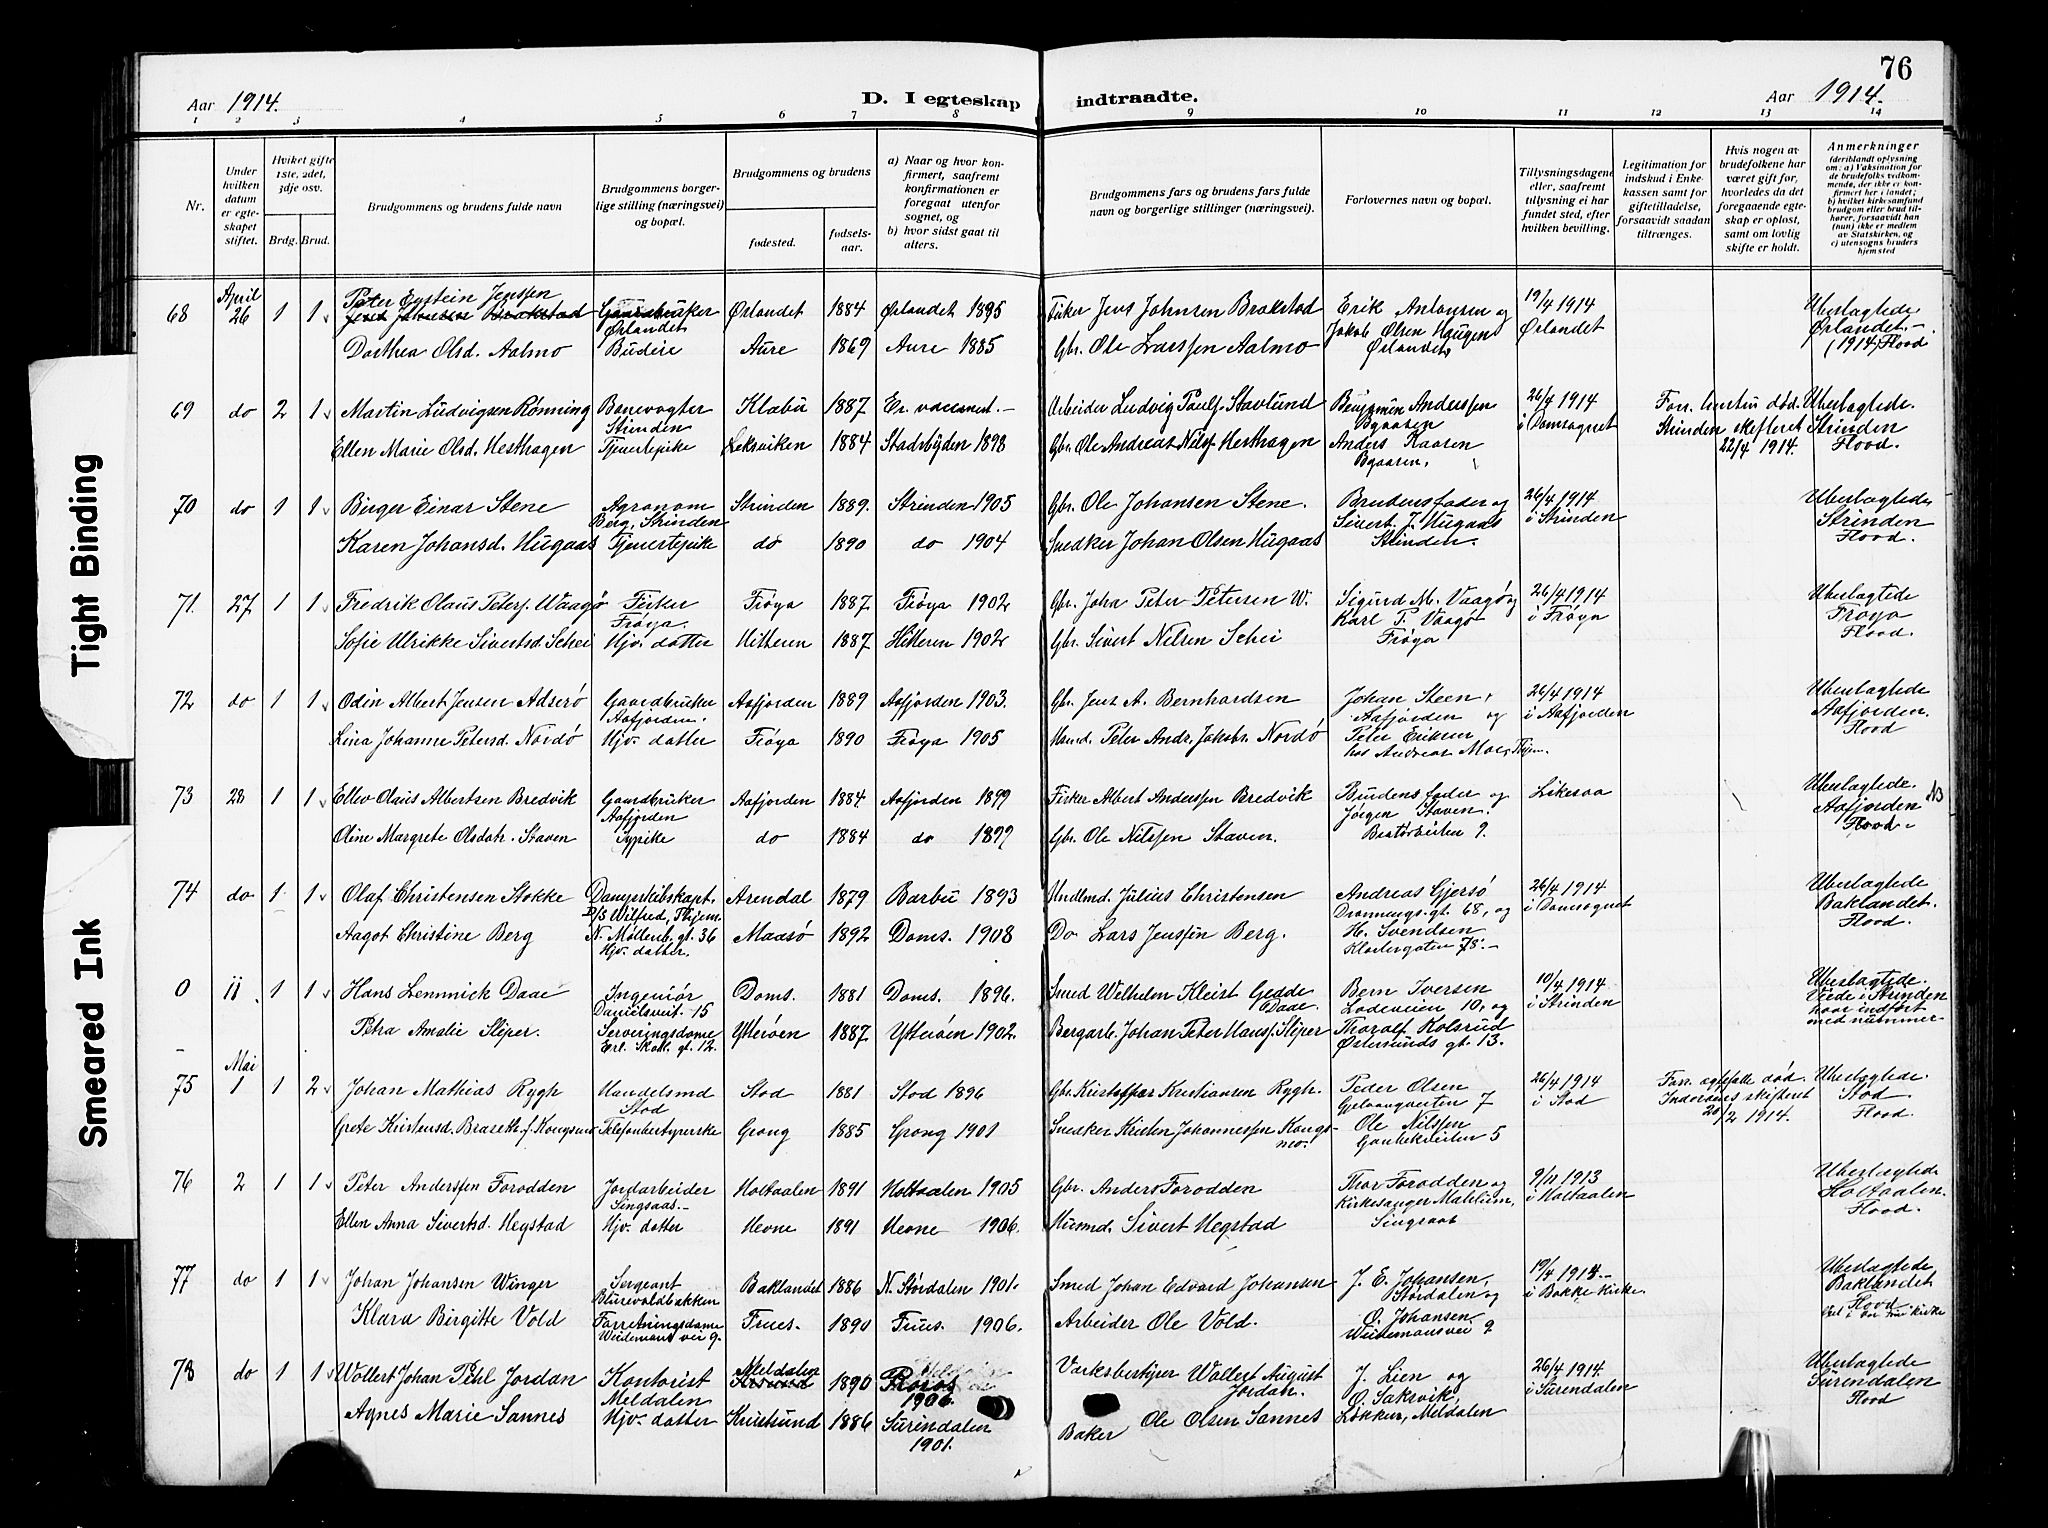 76
Aar 1914.
D. I egteskap indtraadte.
Aar 1914.
1 2 3 4 5 6 7 8 9 10 11 12 13 14
Nr.
Under hvilken datum er egteskapet stiftet.
Hviket gifte 1ste, 2det, 3dje osv.
Brdg. Brud.
Brudgommens og brudens fulde navn
Brudgommens borgerlige stilling (næringsvei) og bopæl.
Brudgommens og brudens
fødested.
fødselsaar.
a) Naar og hvor konfirmert, saafremt konfirmationen er foregaat utenfor sognet, og
b) hvor sidst gaat til alters.
Brudgommens fars og brudens fars fulde navn og borgerlige stillinger (næringsvei).
Forlovernes navn og bopæl.
Tillysningsdagene eller, saafremt tillysning ei har fundet sted, efter hvilken bevilling.
Legitimation for indskud i Enkekassen samt for giftetilladelse, forsaavidt saadan tiltrænges.
Hvis nogen av brudefolkene har været gift før, hvorledes da det foregaaende egteskap er opløst, samt om lovlig skifte er holdt.
Anmerkninger (deriblandt oplysning om: a) Vaksination for de brudefolks vedkommende, der ikke er konfirmert her i landet; b) hvilket kirkesamfund brudgom eller brud tilhører, forsaavidt han (hun) ikke er medlem av Statskirken, og c) utensogns bruders hjemsted
68 April 26 1 1 Peter Eystein Jenssen Gaardbruker Ørlandet 1884 Ørlandet 1895 Fisker Jens Johnsen Brakstad Erik Antonsen og 19/4 1914 Ubeslagtede
Jens Johnsen Brakstad Ørlandet Jakob Olsen Haugen Ørlandet Ørlandet.-
Dorthea Olsd. Aalmo Budeie Aure 1869 Aure 1885 Gbr. Ole Larssen Aalmo Ørlandet (1914) Flood
69 do 2 1 Martin Ludvigsen Rønning Banevogter Klæbu 1887 Er vaccinert.- Arbeider Ludvig Pauls. Stavlund Benjamin Anderssen 26/4 1914 Forr. hustru død. Ubeslagtede.
Strinden Byaasen i Domsognet Strinden skifteret Strinden
Ellen Marie Olsd. Hesthagen Tjenestepike Leksviken 1884 Stadsbygden 1898 Gbr. Ole Andreas Nils. Hesthagen Anders Kaasen 22/4 1914. Flood.
Byaasen.
70 do 1 1 Birger Einar Stene Agronom Strinden 1889. Strinden 1905 Gbr. Ole Johansen Stene. Brudens fader og 26/4 1914 Ubeslagtede
Berg, Strinden Sivert J. Hugaas i Strinden Strinden
Karen Johansd. Hugaas Tjenestepike do 1890 do 1904 Snedker Johan Olsen Hugaas Strinden. Flood.
71. 27 1 1 Fredrik Olaus Peters. Waagø Fisker Frøya 1887 Frøya 1902 Gbr. John Peter Petersen W. Sigurd M. Vaagø og 26/4 1914 Ubeslagtede
Frøya. Karl P. Vaagø i Frøya Frøya
Sofie Ulrikke Sivertsd. Schei Hjv. datter Hitteren 1887 Hitteren 1902 Gbr. Sivert Nilsen Schei Frøya Flood.
72 do 1 1 Odin Albert Jensen Adserø Gaardbruker Aafjorden 1889 Aafjorden 1903. Gbr. Jens A. Bernhardsen Johan Steen, 26/4 1914 Ubeslagtede
Aafjorden. Aafjorden og i Aafjorden Aafjorden.
Lina Johanne Petersd. Nordø Hjv. datter Frøya 1890 Frøya 1905 Hand. Peter Andr. Jakobs. Nordø Peter Eriksen Flood
hos Andreas Moe, Thjem.
73 28 1 1 Ellev Olaus Albertsen Bredvik Gaardbruker Aafjorden 1884 Aafjorden 1899 Fisker Albert Anderssen Bredvik Brudens fader og Likesaa Ubeslagtede.
Aafjorden Jørgen Staven. Aafjorden
Oline Margrete Olsdatr. Staven Sypike do 1884 do 1899 Gbr. Ole Nilssen Staven. 9. Flood.
74 do 1 1 Olaf Christensen Stokke Dampskibskapt. Arendal 1879 Barbu 1893 Hndlmd. Julius Christensen Andreas Gjersø 26/4 1914 Ubeslagtede
D/S Wilfred, Thjem. Dronnings.gt. 68, og i Domsognet Baklandet.
Aagot Christine Berg N. Møllenb. gt. 36 Maasø 1892 Doms. 1908 Do Lars Jenssen Berg. H. Svendsen Flood.
Hjv. datter. Klostergaten 78.-
0 11. 1 1 Hans Lemmick Daae Ingeniør Doms. 1881 Doms. 1896. Smed Wilhelm Kleist Gedde Bern Iversen 10/4 1914 Ubeslagtede.
Danielsveit. 15 Daae. Ladeveien 10, og i Strinden Viede i Strinden
Petra Amalie Sliper. Serveringsdame Ytterøen 1887 Ytterøen 1902. Bergarb. Johan Peter Hans. Sliper Thorolf Kolsrud hvor indført
Erl. Skak. gt. 12. Østersunds gt. 13. med nummer
75 Mai 1 1 2 Johan Mathias Rygh Handelsmd Stod 1881 Stod 1896 Gbr. Kristoffer Kristiansen Rygh. Peder Olsen 26/4 1914 Forr. egtefælle død. Ubeslagtede.
Stod Gjelvangveiten 7 i Stod Inderøens skifteret Stod
Grete Kristensd. Braseth f. Kongsmo Telefonbestyrerske Grong 1885 Grong 1901 Snedker Kristen Johannessen Kongsmo. Ole Nilssen 20/2 1914. Flood.
Ganbekveiten 5
76 2 1 1 Peter Anderssen Forodden Jordarbeider Holtaalen 1891 Holtaalen 1905 Gbr. Anders Forodden Thor Forodden og 9/11 1913 Ubeslagtede
Singsaas.- Kirkesanger Mæhlum, i Holtaalen Holtaalen.
Ellen Anna Sivertsd. Hegstad Hjv. datter Hevne 1891 Hevne 1906. Husmd. Sivert Hegstad Singsaas Flood.
77 do 1 1 Johan Johansen Winger Sergeant Baklandet 1886 N. Størdalen 1901. Smed Johan Edvard Johansen J. E. Johansen, 19/4 1914.- Ubeslagtede
Bturevoldbakken Stordalen og i Bakke kirke. Baklandet
Klara Birgitte Vold Forretningsdame Frues. 1890 Frues. 1906. Arbeider Ole Vold. O. Johansen Flood
Weidemans vei 9. Weidemansvei 9 Viet i Vor Frue kirke
78 do 1 1 Wollert Johan Pehl Jordan Kontorist Meldalen 1890 Røros Verksbestyrer Wollert August J. Lien og 26/4 1914. Ubeslagtede
Meldalen 1906. Jordan. O. Sakrvik, i Surendalen Surendalen
Agnes Marie Sannes Hjv. datter Kristsund 1886 Surendalen Baker Ole Olsen Sannes Løkken, Meldalen Flood
1901.
Tight Binding
Smeared Ink